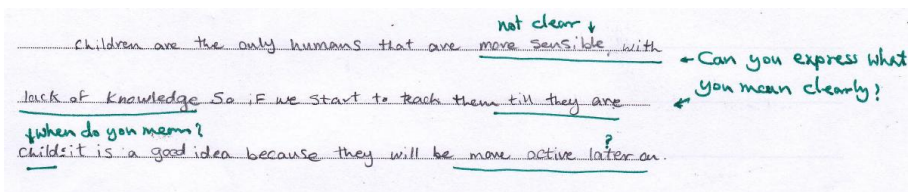 not clear ↓
Children are the only humans that are more sensible, with
← Can you express what
you mean clearly?
lack of knowledge So if we start to teach them till they are
↓ when do you mean?
?
childs it is a good idea because they will be more active later on.